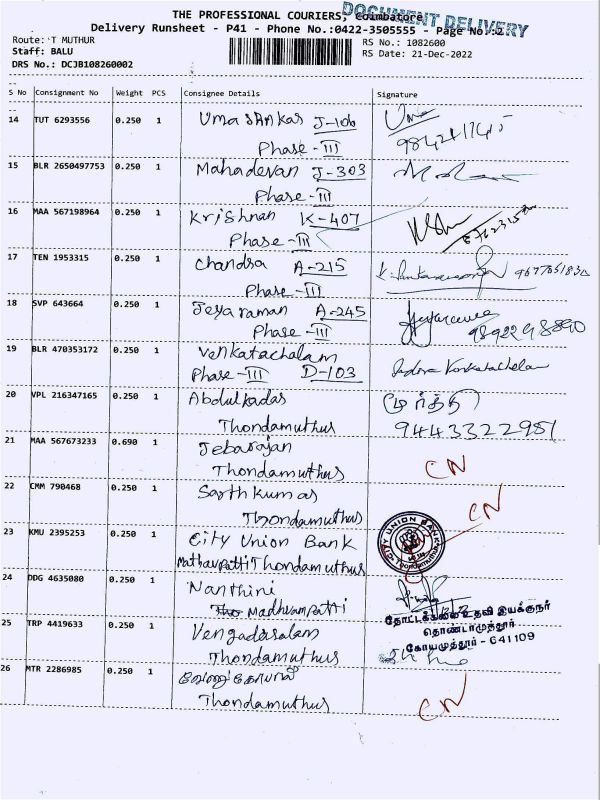 THE PROFESSIONAL COURIERS, Coimbatore
DOCUMENT DELIVERY
Delivery Runsheet - P41 - Phone No.:0422-3505555 - Page No.:2
Route: T MUTHUR
RS No.: 1082600
Staff: BALU
RS Date: 21-Dec-2022
DRS No.: DCJB108260002
S No Consignment No Weight PCS Consignee Details Signature
14 TUT 6293556 0.250 1 Uma Sankar J-106
Phase-III
15 BLR 2650497753 0.250 1 Mahadevan J-303
Phase-III
16 MAA 567198964 0.250 1 Krishnan K-407
Phase-III
17 TEN 1953315 0.250 1 Chandra A-215
Phase-III
18 SVP 643664 0.250 1 Jeyaraman A-245
Phase-III
19 BLR 470353172 0.250 1 Venkatachalam
Phase-III D-103
20 VPL 216347165 0.250 1 Abdulkadar
Thondamuthur 9443322981
21 MAA 567673233 0.690 1 Jebarajan
Thondamuthur CN
22 CMM 790468 0.250 1 Sarthkumar CN
Thondamuthur
23 KMU 2395253 0.250 1 City Union Bank CITY UNION BANK
Mathavpatti Thondamuthur
24 DDG 4635080 0.250 1 Nanthini
Madhvampatti
தோட்டக்கலை உதவி இயக்குநர்
தொண்டாமுத்தூர்
கோயமுத்தூர் - 641109
25 TRP 4419633 0.250 1 Vengadasalam
Thondamuthur
26 MTR 2286985 0.250 1 வேணுகோபால்
Thondamuthur CN